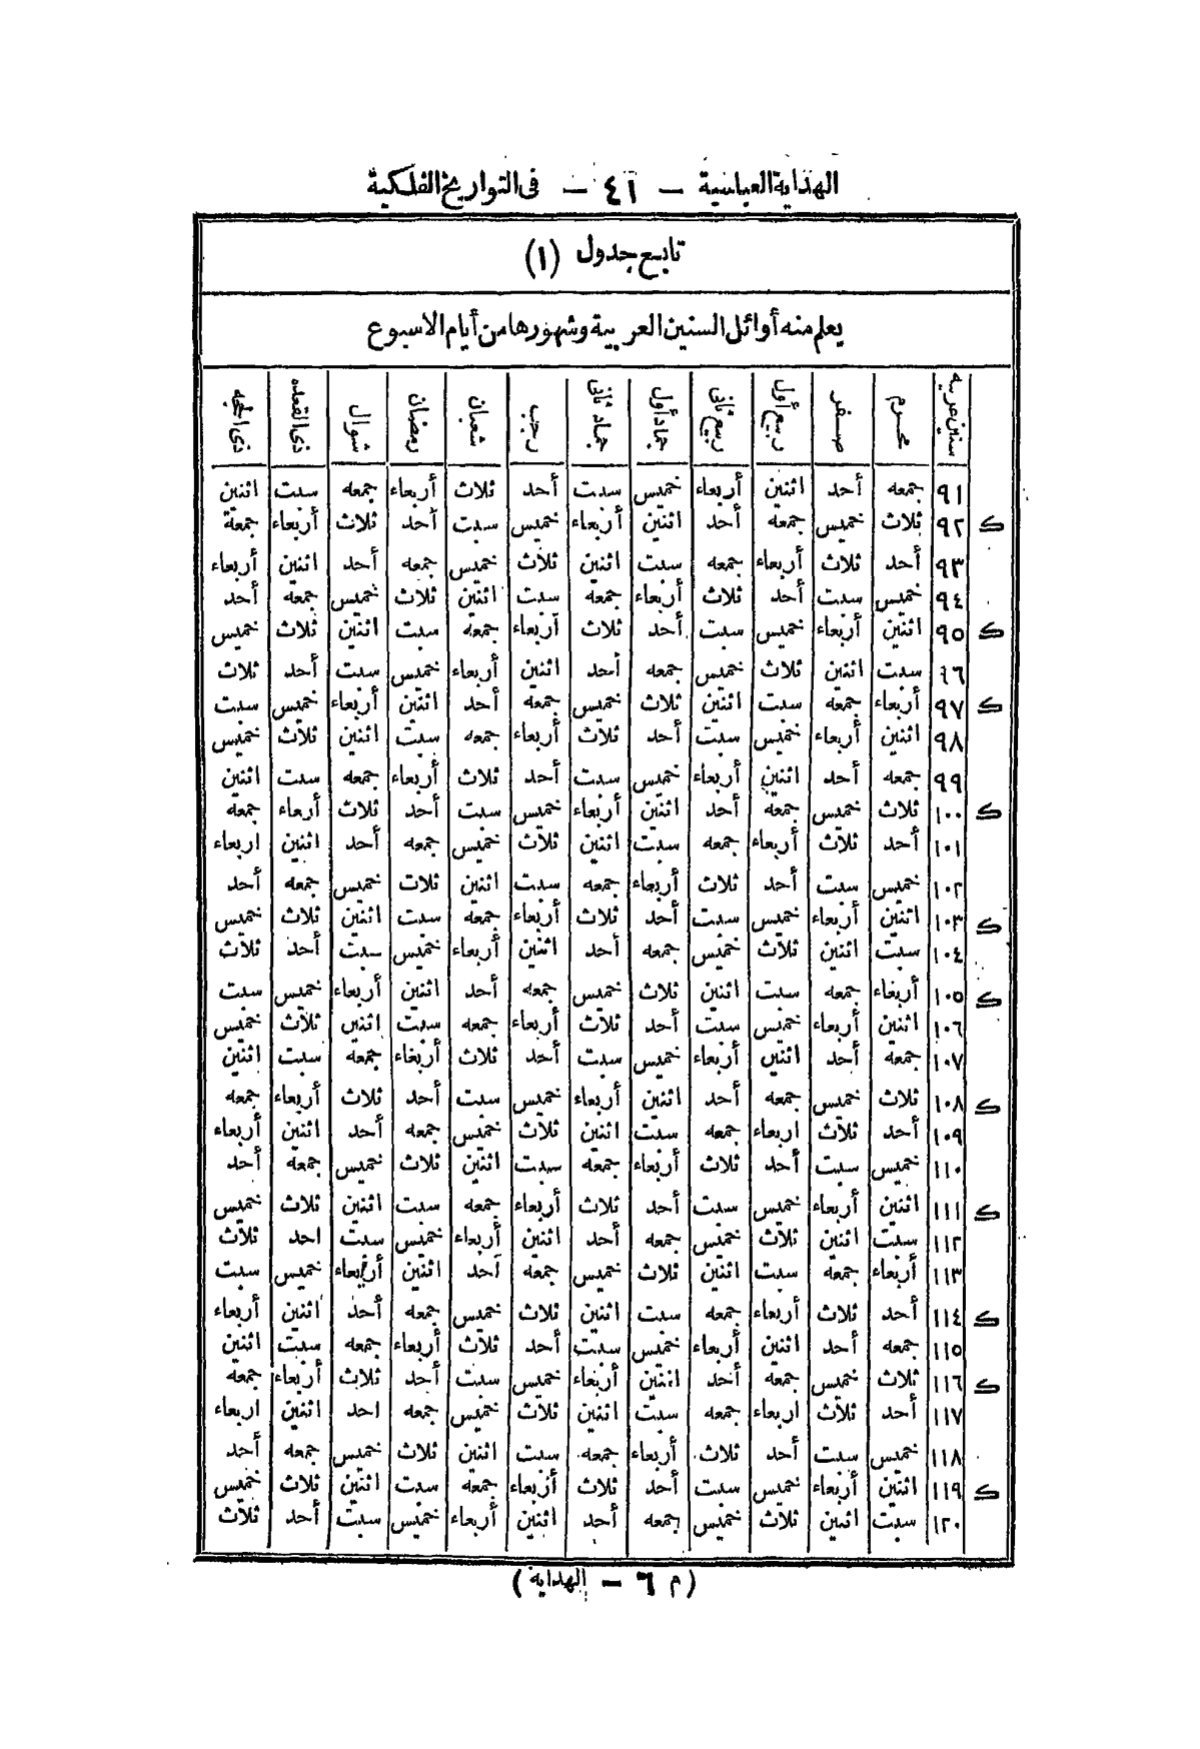 الهداية العباسية – ٤١ – فى التواريخ الفلكية
تابع جدول (١)
يعلم منه أوائل السنين العربية وشهورها من أيام الاسبوع
سنين عربيه محرم صفر ربيع أول ربيع ثانى جماد أول جماد ثانى رجب شعبان رمضان شوال ذى القعده ذى الحجه
٩١ جمعه أحد اثنين أربعاء خميس سبت أحد ثلاث أربعاء جمعه سبت اثنين
ك ٩٢ ثلاث خميس جمعه أحد اثنين أربعاء خميس سبت أحد ثلاث أربعاء جمعة
٩٣ أحد ثلاث أربعاء جمعه سبت اثنين ثلاث خميس جمعه أحد اثنين أربعاء
٩٤ خميس سبت أحد ثلاث أربعاء جمعه سبت اثنين ثلاث خميس جمعه أحد
ك ٩٥ اثنين أربعاء خميس سبت أحد ثلاث أربعاء جمعه سبت اثنين ثلاث خميس
٩٦ سبت اثنين ثلاث خميس جمعه أحد اثنين أربعاء خميس سبت أحد ثلاث
ك ٩٧ أربعاء جمعه سبت اثنين ثلاث خميس جمعه أحد اثنين أربعاء خميس سبت
٩٨ اثنين أربعاء خميس سبت أحد ثلاث أربعاء جمعه سبت اثنين ثلاث خميس
٩٩ جمعه أحد اثنين أربعاء خميس سبت أحد ثلاث أربعاء جمعه سبت اثنين
ك ١٠٠ ثلاث خميس جمعه أحد اثنين أربعاء خميس سبت أحد ثلاث أربعاء جمعه
١٠١ أحد ثلاث أربعاء جمعه سبت اثنين ثلاث خميس جمعه أحد اثنين اربعاء
١٠٢ خميس سبت أحد ثلاث أربعاء جمعه سبت اثنين ثلاث خميس جمعه أحد
ك ١٠٣ اثنين أربعاء خميس سبت أحد ثلاث أربعاء جمعه سبت اثنين ثلاث خميس
١٠٤ سبت اثنين ثلاث خميس جمعه أحد اثنين أربعاء خميس سبت أحد ثلاث
ك ١٠٥ أربعاء جمعه سبت اثنين ثلاث خميس جمعه أحد اثنين أربعاء خميس سبت
١٠٦ اثنين أربعاء خميس سبت أحد ثلاث أربعاء جمعه سبت اثنين ثلاث خميس
١٠٧ جمعه أحد اثنين أربعاء خميس سبت أحد ثلاث أربعاء جمعه سبت اثنين
ك ١٠٨ ثلاث خميس جمعه أحد اثنين أربعاء خميس سبت أحد ثلاث أربعاء جمعه
١٠٩ أحد ثلاث اربعاء جمعه سبت اثنين ثلاث خميس جمعه أحد اثنين أربعاء
١١٠ خميس سبت أحد ثلاث أربعاء جمعه سبت اثنين ثلاث خميس جمعه أحد
ك ١١١ اثنين أربعاء خميس سبت أحد ثلاث أربعاء جمعه سبت اثنين ثلاث خميس
١١٢ سبت اثنين ثلاث خميس جمعه أحد اثنين أربعاء خميس سبت احد ثلاث
١١٣ أربعاء جمعه سبت اثنين ثلاث خميس جمعه أحد اثنين أربعاء خميس سبت
ك ١١٤ أحد ثلاث أربعاء جمعه سبت اثنين ثلاث خميس جمعه أحد اثنين أربعاء
١١٥ جمعه أحد اثنين أربعاء خميس سبت أحد ثلاث أربعاء جمعه سبت اثنين
ك ١١٦ ثلاث خميس جمعه أحد اثنين أربعاء خميس سبت أحد ثلاث أربعاء جمعه
١١٧ أحد ثلاث اربعاء جمعه سبت اثنين ثلاث خميس جمعه احد اثنين اربعاء
١١٨ خميس سبت أحد ثلاث أربعاء جمعه سبت اثنين ثلاث خميس جمعه أحد
ك ١١٩ اثنين أربعاء خميس سبت أحد ثلاث أربعاء جمعه سبت اثنين ثلاث خميس
١٢٠ سبت اثنين ثلاث خميس جمعه أحد اثنين أربعاء خميس سبت أحد ثلاث
(م ٦ – الهداية)